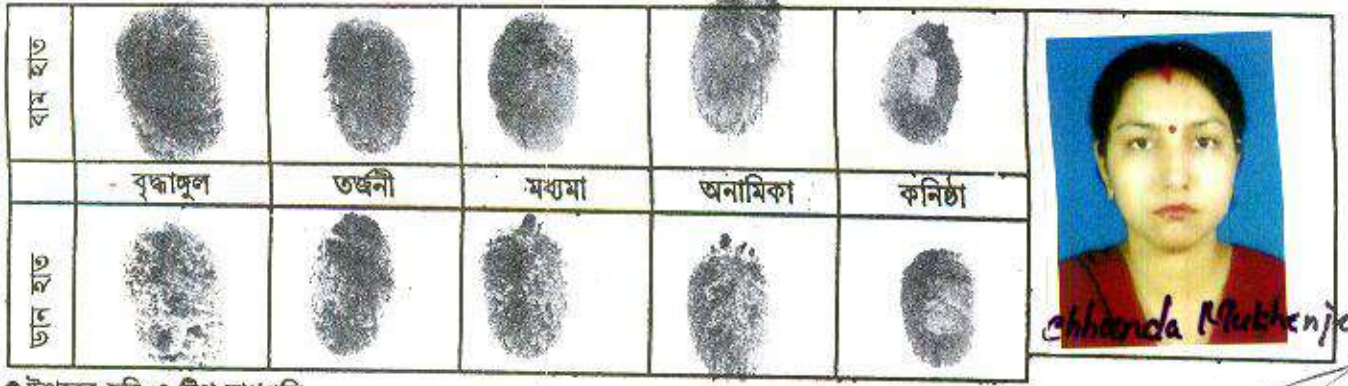 বাম হাত
বৃদ্ধাঙ্গুল তর্জনী মধ্যমা অনামিকা কনিষ্ঠা
ডান হাত
Chhanda Mukherje